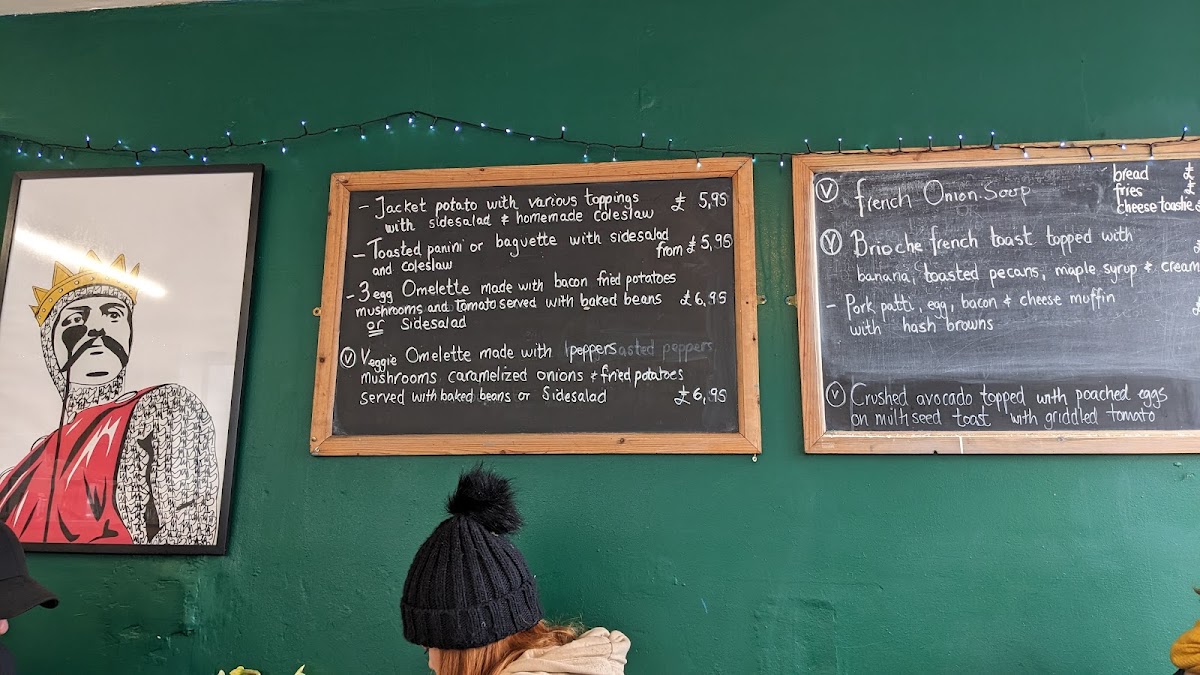 - Jacket potato with various toppings £ 5,95
with sidesalad & homemade coleslaw
- Toasted panini or baguette with sidesalad
and coleslaw from £ 5,95
- 3 egg Omelette made with bacon fried potatoes
mushrooms and Tomato served with baked beans £ 6,95
or Sidesalad
Ⓥ Veggie Omelette made with peppers
mushrooms caramelized onions & fried potatoes
served with baked beans or Sidesalad £ 6,95
Ⓥ french Onion Soup
bread
fries
cheese toastie
Ⓥ Brioche french toast topped with
banana, toasted pecans, maple syrup & cream
- Pork patti, egg, bacon & cheese muffin
with hash browns
Ⓥ Crushed avocado topped with poached eggs
on multiseed toast with griddled tomato